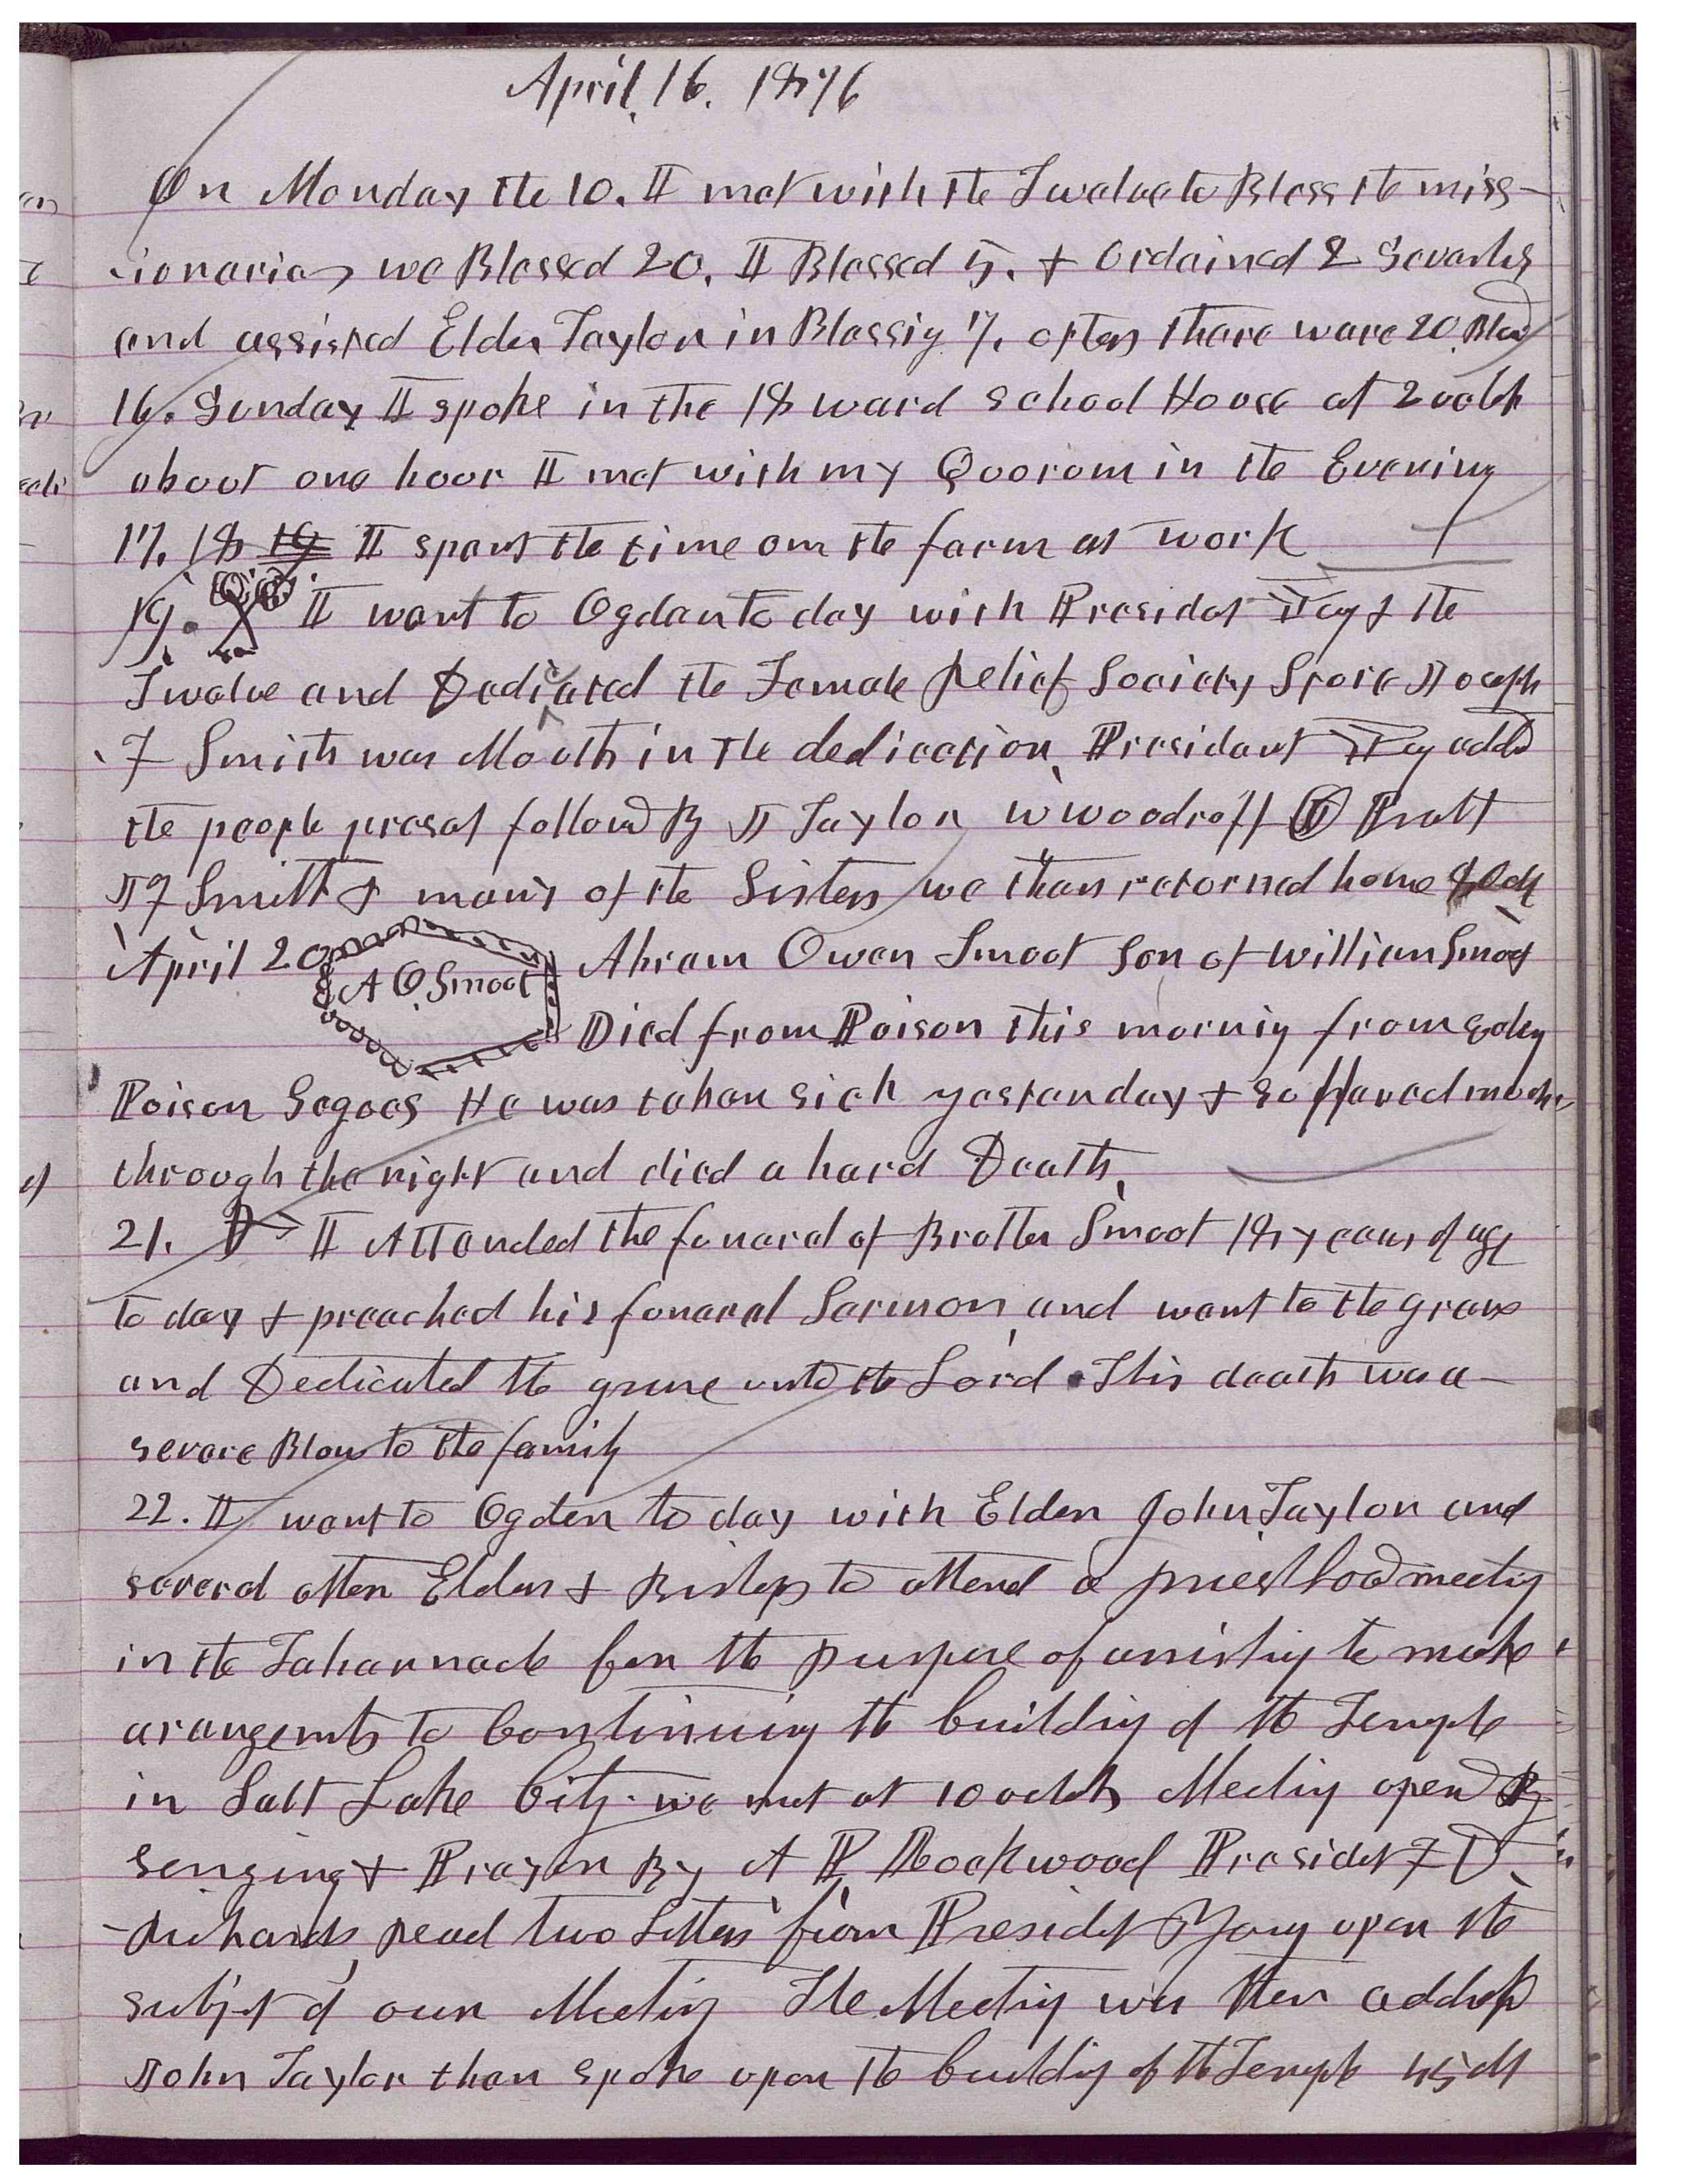 April, 16. 1876
On Monday the 10. I met with the Twelve to Bless the miss-
ionaries we Blessed 20. I Blessed 5. & Ordained 2 Seventies
and assisted Elder Taylor in Blessig 7. others there ware 20 Blesd
16. Sunday I spoke in the 18 ward School House at 2 oclok
about one hour I met with my Quorum in the Evening
17. 18 19 I spent the time on the farm at work
19. I went to Ogden to day with Presidet Young & the
Twelve and Dedicated the Female Relief Society Store Joseph
F Smith was Mouth in the dedication, President Young addd
the people preset followd By J Taylor W Woodruff O Pratt
J F Smith & many of the Sisters we then returned home
April 20 A O Smoot Abram Owen Smoot Son of William Smoot
Died from Poison this mornig from
Poison Segoes He was taken sick yesterday & suffered much
through the night and died a hard Death,
21. I Attended the funeral of Brother Smoot 18 years of age
to day & preached his funeral Sermon, and went to the grave
and Dedicated the grave unto the Lord. This death was a
severe Blow to the family
22. I went to Ogden to day with Elder John Taylor and
several other Elders & Bishops to attend a priesthood meetig
in the Tabernacle for the purpose of assistig to make
arangemts to Continuing the building of the Temple
in Salt Lake City. we met at 10 oclok Meetig opend By
Senging & Prayer By A P Rockwood Presidet F D
Richards, read two Letters from Presidet Young upon the
subjet of our Meetig The Meetig was then addresd
John Taylor then spoke upon the buildig of the Temple 45 M